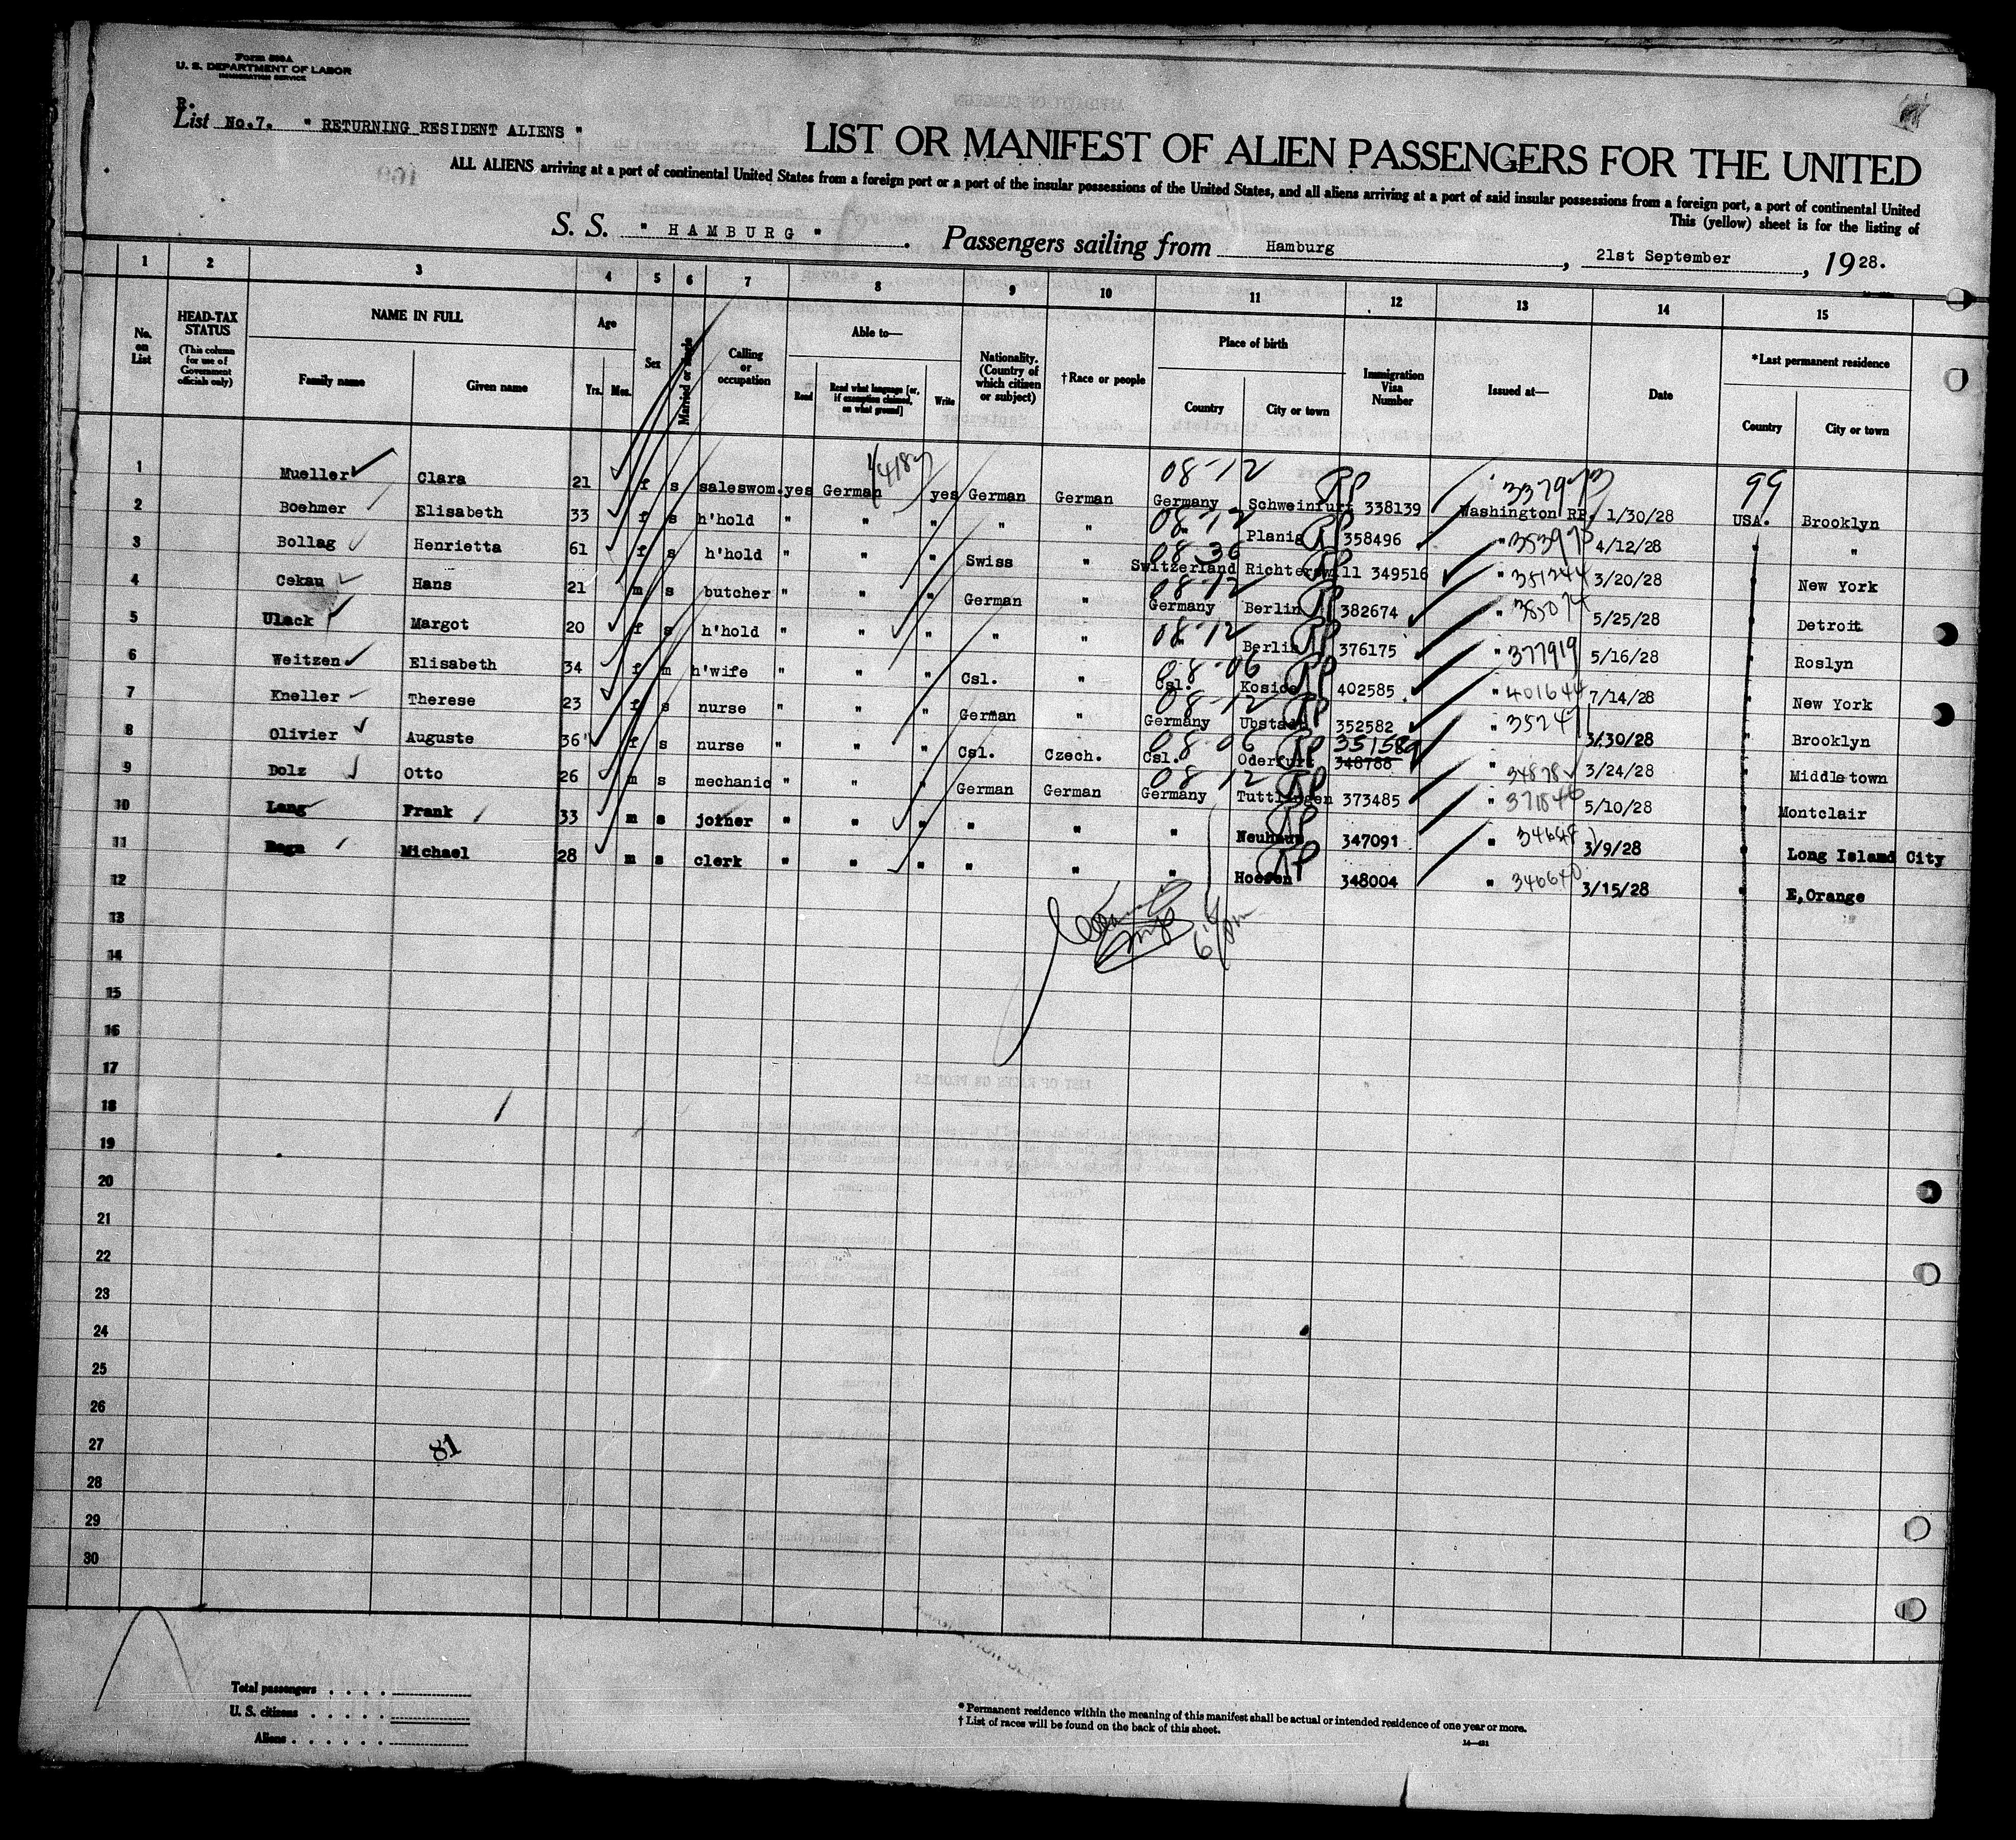 Form 500A
U. S. DEPARTMENT OF LABOR
IMMIGRATION SERVICE
B.
List No.7. " RETURNING RESIDENT ALIENS "
LIST OR MANIFEST OF ALIEN PASSENGERS FOR THE UNITED
ALL ALIENS arriving at a port of continental United States from a foreign port or a port of the insular possessions of the United States, and all aliens arriving at a port of said insular possessions from a foreign port, a port of continental United
This (yellow) sheet is for the listing of
S. S. " HAMBURG " . Passengers sailing from Hamburg , 21st September , 1928.
1 2 3 4 5 6 7 8 9 10 11 12 13 14 15
No. on List
HEAD-TAX STATUS (This column for use of Government officials only)
NAME IN FULL Family name Given name
Age Yrs. Mos.
Sex
Married or single
Calling or occupation
Able to— Read Read what language [or, if exemption claimed, on what ground] Write
Nationality. (Country of which citizen or subject)
†Race or people
Place of birth Country City or town
Immigration Visa Number
Issued at—
Date
*Last permanent residence Country City or town
08-12 RP 99
1 Mueller Clara 21 f s saleswom. yes German yes German German Germany Schweinfurt 338139 Washington RP. 1/30/28 USA. Brooklyn
08-12 RP
2 Boehmer Elisabeth 33 f s h'hold " " " " " " Planig 358496 " 4/12/28 " "
08 36 RP
3 Bollag Henrietta 61 f s h'hold " " " Swiss " Switzerland Richterswill 349516 " 381244 3/20/28 " New York
08-12 RP
4 Cekau Hans 21 m s butcher " " " German " Germany Berlin 382674 " 385074 5/25/28 " Detroit
08-12 RP
5 Ulack Margot 20 f s h'hold " " " " " " Berlin 376175 " 377919 5/16/28 " Roslyn
08-06 RP
6 Weitzen Elisabeth 34 f m h'wife " " " Csl. " Csl. 402585 " 401644 7/14/28 " New York
08-12 RP
7 Kneller Therese 23 f s nurse " " " German " Germany Ubstadt 352582 " 3/30/28 " Brooklyn
08-06 RP 351589
8 Olivier Auguste 36 f s nurse " " " Csl. Czech. Csl. Oderfurt 348788 " 3/24/28 " Middletown
08-12 RP
9 Dolz Otto 26 m s mechanic " " " German German Germany Tuttlingen 373485 " 371846 5/10/28 " Montclair
RP
10 Lang Frank 33 m s joiner " " " " " " Neuhaus 347091 " 3/9/28 " Long Island City
RP
11 Michael 28 m s clerk " " " " " " 348004 " 346640 3/15/28 " E,Orange
12
13
14
15
16
17
18
19
20
21
22
23
24
25
26
27
81
28
29
30
Total passengers . . . .
U. S. citizens . . . . .
Aliens . . . . . .
* Permanent residence within the meaning of this manifest shall be actual or intended residence of one year or more.
† List of races will be found on the back of this sheet.